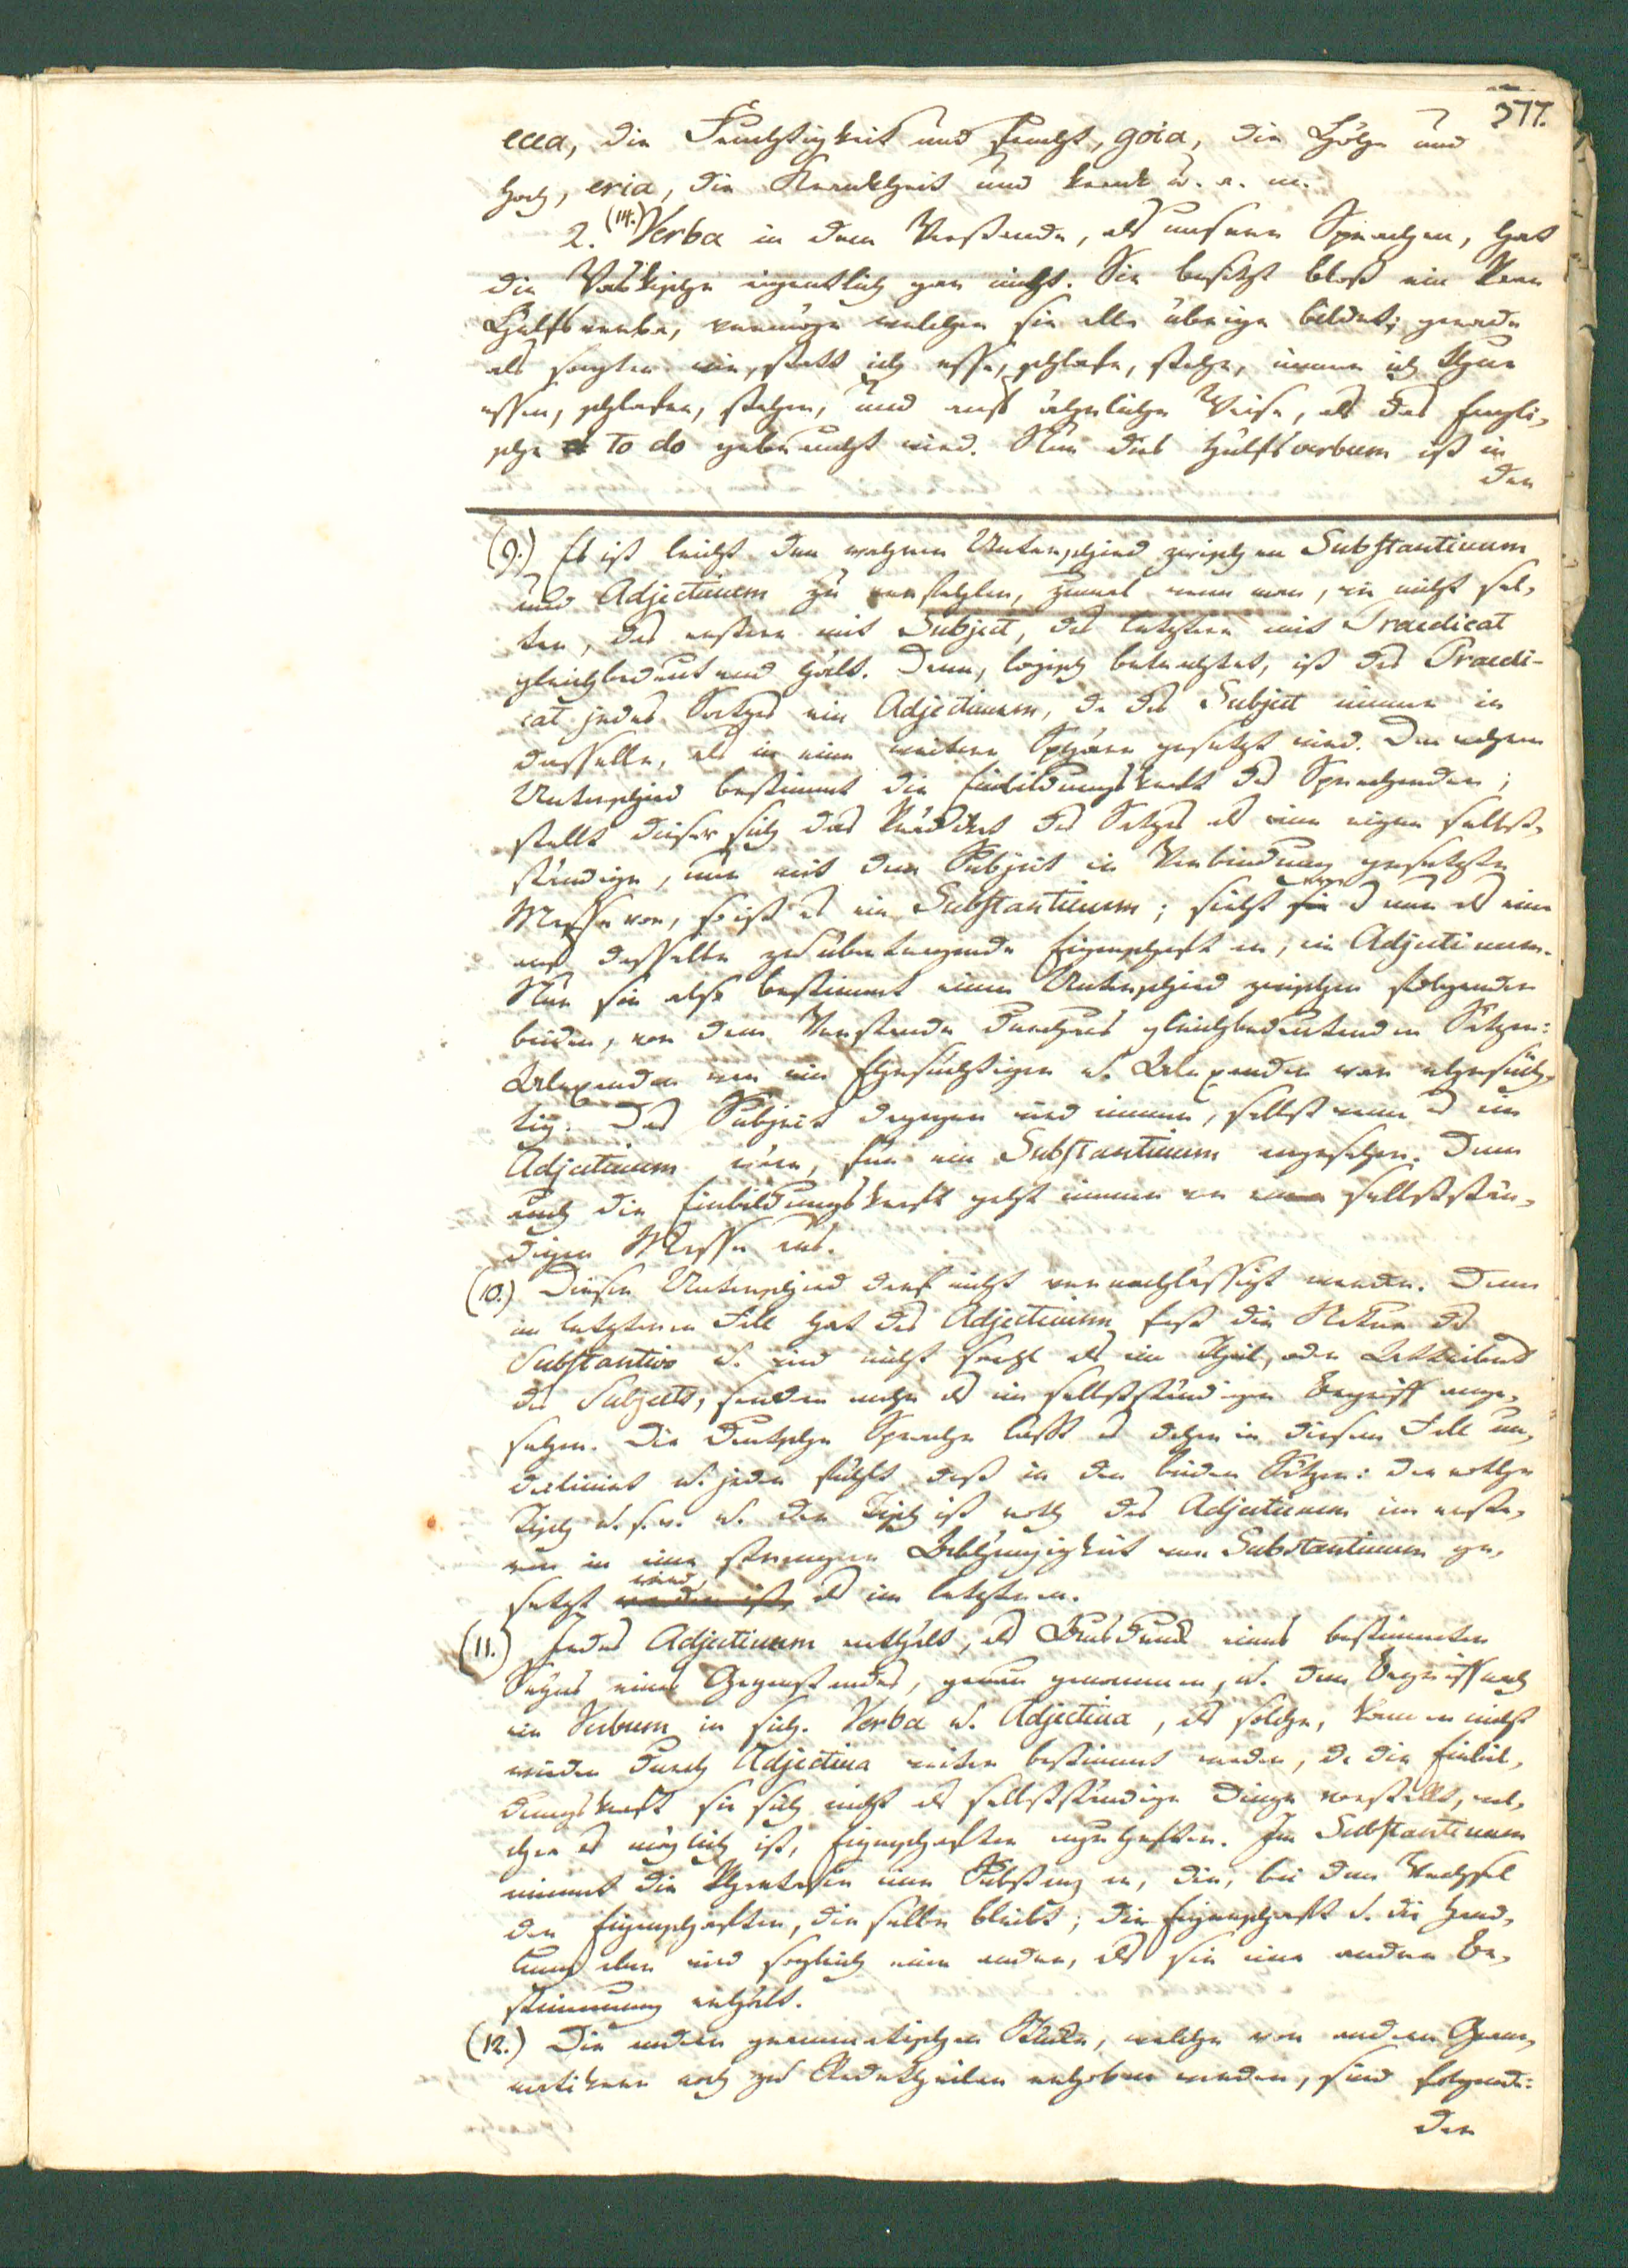 377.
ecea, die Feuchtigkeit und feucht, goia, die Höhe und
hoch, eria, die Krankheit und krank u. a. m.
2. (14.) Verba in dem Verstande, als unsere Sprachen, hat
die Vaskische eigentlich gar nicht. Sie besitzt bloß ein Paar
Hülfsverba, vermöge welcher sie alle übrige bildet; gerade
als sagten wir, statt ich esse, schlafe, stehe, immer ich thue
essen, schlafen, stehen, und auf ähnliche Weise, als das Engli-
sche to do gebraucht wird. Nur dies Hülfsverbum ist in
der
(9.) Es ist leicht den wahren Unterschied zwischen Substantivum
und Adjectivum zu verfehlen, zumal wenn man, wie nicht sel-
ten, das erstere mit Subject, das letztere mit Praedicat
gleichbedeutend hält. Denn, logisch betrachtet, ist das Praedi-
cat jedes Satzes ein Adjectivum, da das Subject immer in
dasselbe, als in eine weitere Sphäre gesetzt wird. Den wahren
Unterschied bestimmt die Einbildungskraft des Sprechenden;
stellt dieser sich das Prädikat des Satzes als eine eigne selbst-
ständige, nur mit dem Subject in Verbindung gesetzte
Masse vor, so ist es ein Substantivum; sieht er es nur als eine
auf dasselbe zu übertragende Eigenschaft an, ein Adjectivum.
Nur sie also bestimmt einen Unterschied zwischen folgenden
beiden, vor dem Verstande durchaus gleichbedeutenden Sätzen:
Alexander war ein Ehrsüchtiger u. Alexander war ehrsüch-
tig. Das Subject dagegen wird immer, selbst wenn es ein
Adjectivum wäre, für ein Substantivum angesehen. Denn
auch die Einbildungskraft geht immer von einer selbststän-
digen Masse aus.
(10.) Dieser Unterschied darf nicht vernachlässigt werden. Denn
im letzteren Fall hat das Adjectivum fast die Natur des
Substantivs u. wird nicht sowohl als ein Theil, oder Attribut
des Subjects, sondern mehr als ein selbstständiger Begriff ange-
sehen. Die Deutsche Sprache läßt es daher in diesem Fall un-
declinirt u. jeder fühlt daß in den beiden Sätzen: der rothe
Tisch u. s. w. u. der Tisch ist roth das Adjectivum im erste-
ren in eine strengere Abhängigkeit vom Substantivum ge-
setzt wird, als im letzteren.
(11.) Jedes Adjectivum enthält, als Ausdruck eines bestimmten
Seyns eines Gegenstandes, genau genommen, u. dem Begriff nach
ein Verbum in sich. Verba u. Adjectiva, als solche, können nicht
wieder durch Adjectiva weiter bestimmt werden, da die Einbil-
dungskraft sie sich nicht als selbstständige Dinge vorstellt, wel-
chen es möglich ist, Eigenschaften anzuheften. Im Substantivum
nimmt die Phantasie eine Substanz an, die, bei dem Wechsel
der Eigenschaften, dieselbe bleibt; die Eigenschaft u. die Hand-
lung aber wird sogleich eine andre, als sie eine andere Be-
stimmung enthält.
(12.) Die andern grammatischen Stücke, welche von andern Gram-
matikern noch zu Redetheilen erhoben werden, sind folgende:
der